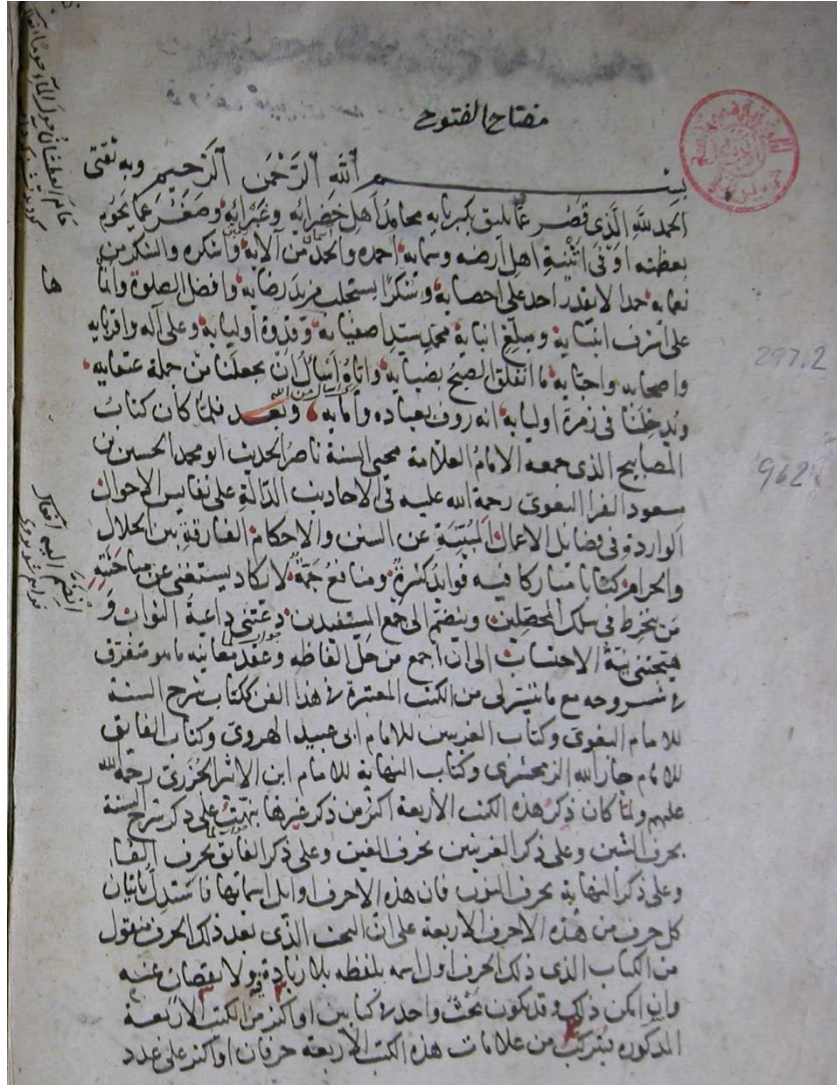 مفتاح الفتوح
بسم الله الرحمن الرحيم وبه ثقتي
الحمد لله الذي قصر عما يليق بكبريائه محامد اهل خضرائه وغبرائه وصغر عما يحوم
بعظمته اوفى اثنية اهل ارضه وسمائه احمده والحمد من آلائه واشكره والشكر من
نعمائه حمدا لا يقدر احد على احصائه وشكرا يستجلب مزيد رضائه وافضل الصلوة
على اشرف انبيائه ومبلغ انبائه محمد سيد اصفيائه وقدوة اوليائه وعلى آله واقربائه
واصحابه واحبائه ما انفلق الصبح بضيائه واياه اسأل ان يجعلنا من جملة عتقائه
ويدخلنا في زمرة اوليائه انه رؤف بعباده وامائه وبعد فلما كان كتاب
المصابيح الذي جمعه الامام العلامة محيي السنة ناصر الحديث ابو محمد الحسين بن
مسعود الفرا البغوي رحمة الله عليه في الاحاديث الدالة على نفايس الاحوال
الواردة في فضايل الاعمال المبينة عن السنن والاحكام الفارقة بين الحلال
والحرام كتابا مباركا فيه فوايد كثيرة ومنافع جمة لا يكاد يستغنى عن مباحثته
من ينخرط في سلك المحصلين وينضم الى جمع المستفيدين دعتني داعية الثواب و
هيجتني نية الاحتساب الى ان اجمع من حل الفاظه وعقد معانيه ما هو متفرق
في شروحه مع ما تيسر لي من الكتب المعتبرة في هذا الفن ككتاب شرح السنة
للامام البغوي وكتاب الغريبين للامام ابي عبيد الهروي وكتاب الفايق
للامام جار الله الزمخشري وكتاب النهاية للامام ابن الاثير الجزري رحمة الله
عليهم ولما كان ذكر هذه الكتب الاربعة اكثر من ذكر غيرها نبهت على ذكر شرح السنة
بحرف الشين وعلى ذكر الغريبين بحرف الغين وعلى ذكر الفايق بحرف الفا
وعلى ذكر النهاية بحرف النون فان هذه الاحرف اوايل اسمائها فاستدل باتيان
كل حرف من هذه الاحرف الاربعة على ان البحث الذي بعد ذلك الحرف منقول
من الكتاب الذي ذلك الحرف اول اسمه بلفظه بلا زيادة فيه ولا نقصان عنه
وان امكن ذلك وقد يكون بحث واحد في كتابين او اكثر من الكتب الاربعة
المذكورة فيتركب من علامات هذه الكتب الاربعة حرفان او اكثر على عدد
297.2
962